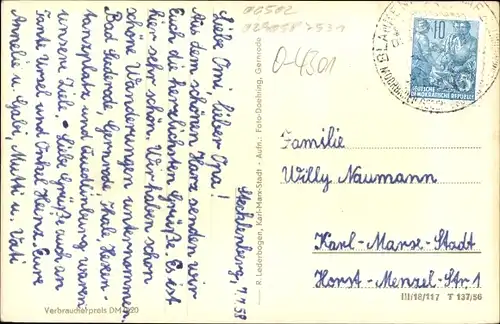 Stecklenberg, 7.7.58
Liebe Omi, lieber Opa!
Aus dem schönen Harz senden wir
Euch die herzlichsten Grüße. Es ist
hier sehr schön. Wir haben schon
schöne Wanderungen unternommen.
Bad Suderode, Gernrode, Thale, Hexen-
tanzplatz und Quedlinburg waren
unsere Ziele. Liebe Grüße auch an
Tante Ursel und Onkel Heinz. Eure
Annelie u. Gabi, Mutti u. Vati
Verbraucherpreis DM 0,20
R. Lederbogen, Karl-Marx-Stadt - Aufn.: Foto-Daehring, Gernrode
0-4301
10
DEUTSCHE
DEMOKRATISCHE REPUBLIK
Familie
Willy Naumann
Karl-Marx-Stadt
Horst-Menzel-Str 1
III/18/117 T 137/56